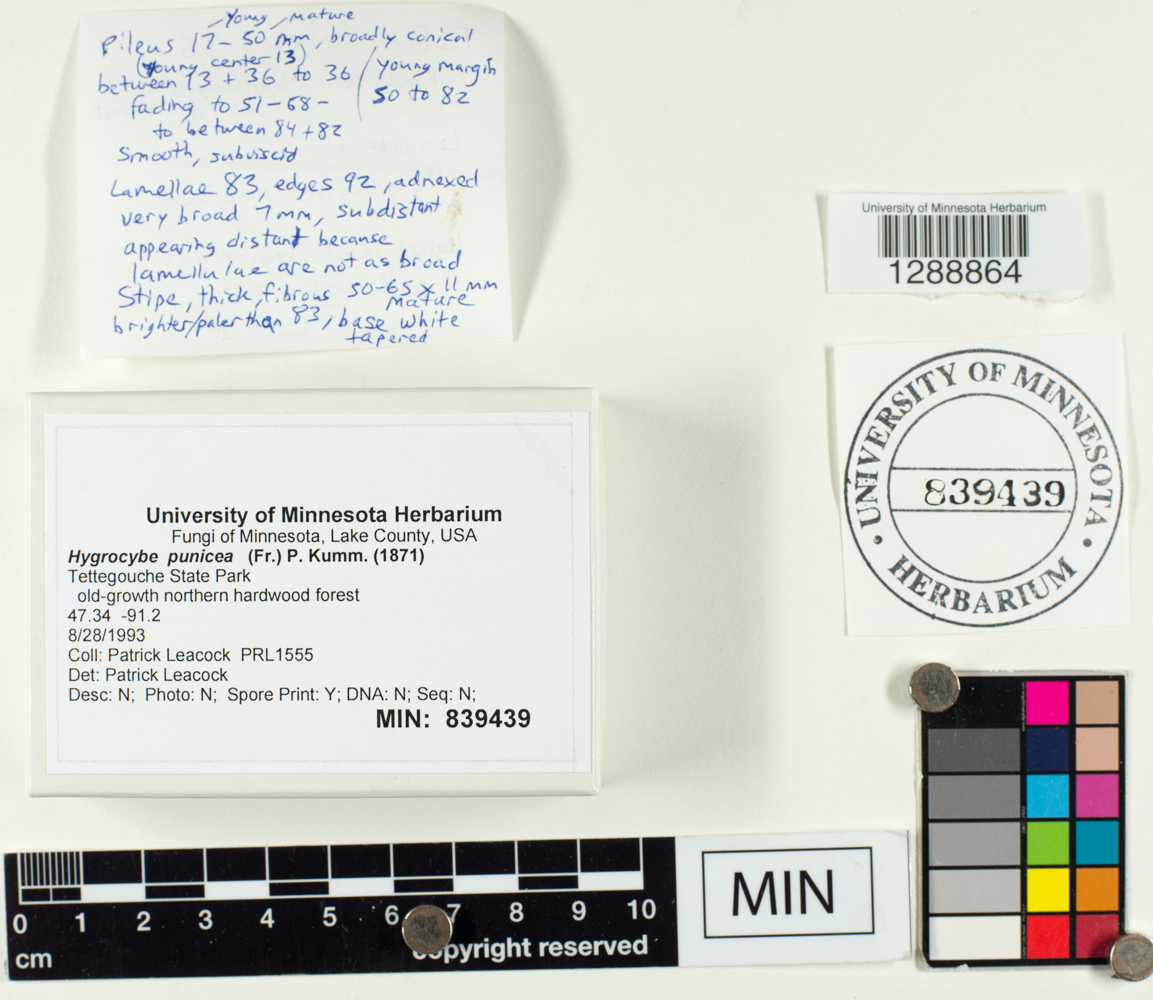 young mature
Pileus 17-50 mm, broadly conical
(young center 13)
between 13 + 36 to 36 / young margin
fading to 51-68- 50 to 82
to between 84 + 82
Smooth, subviscid
Lamellae 83, edges 92, adnexed
very broad 7mm, subdistant
appearing distant because
lamellulae are not as broad
Stipe, thick, fibrous 50-65 x 11 mm
mature
brighter/paler than 83, base white
tapered
University of Minnesota Herbarium
1288864
UNIVERSITY OF MINNESOTA
839439
• HERBARIUM •
University of Minnesota Herbarium
Fungi of Minnesota, Lake County, USA
Hygrocybe punicea (Fr.) P. Kumm. (1871)
Tettegouche State Park
old-growth northern hardwood forest
47.34 -91.2
8/28/1993
Coll: Patrick Leacock PRL1555
Det: Patrick Leacock
Desc: N; Photo: N; Spore Print: Y; DNA: N; Seq: N;
MIN: 839439
0 1 2 3 4 5 6 7 8 9 10
cm
copyright reserved
MIN